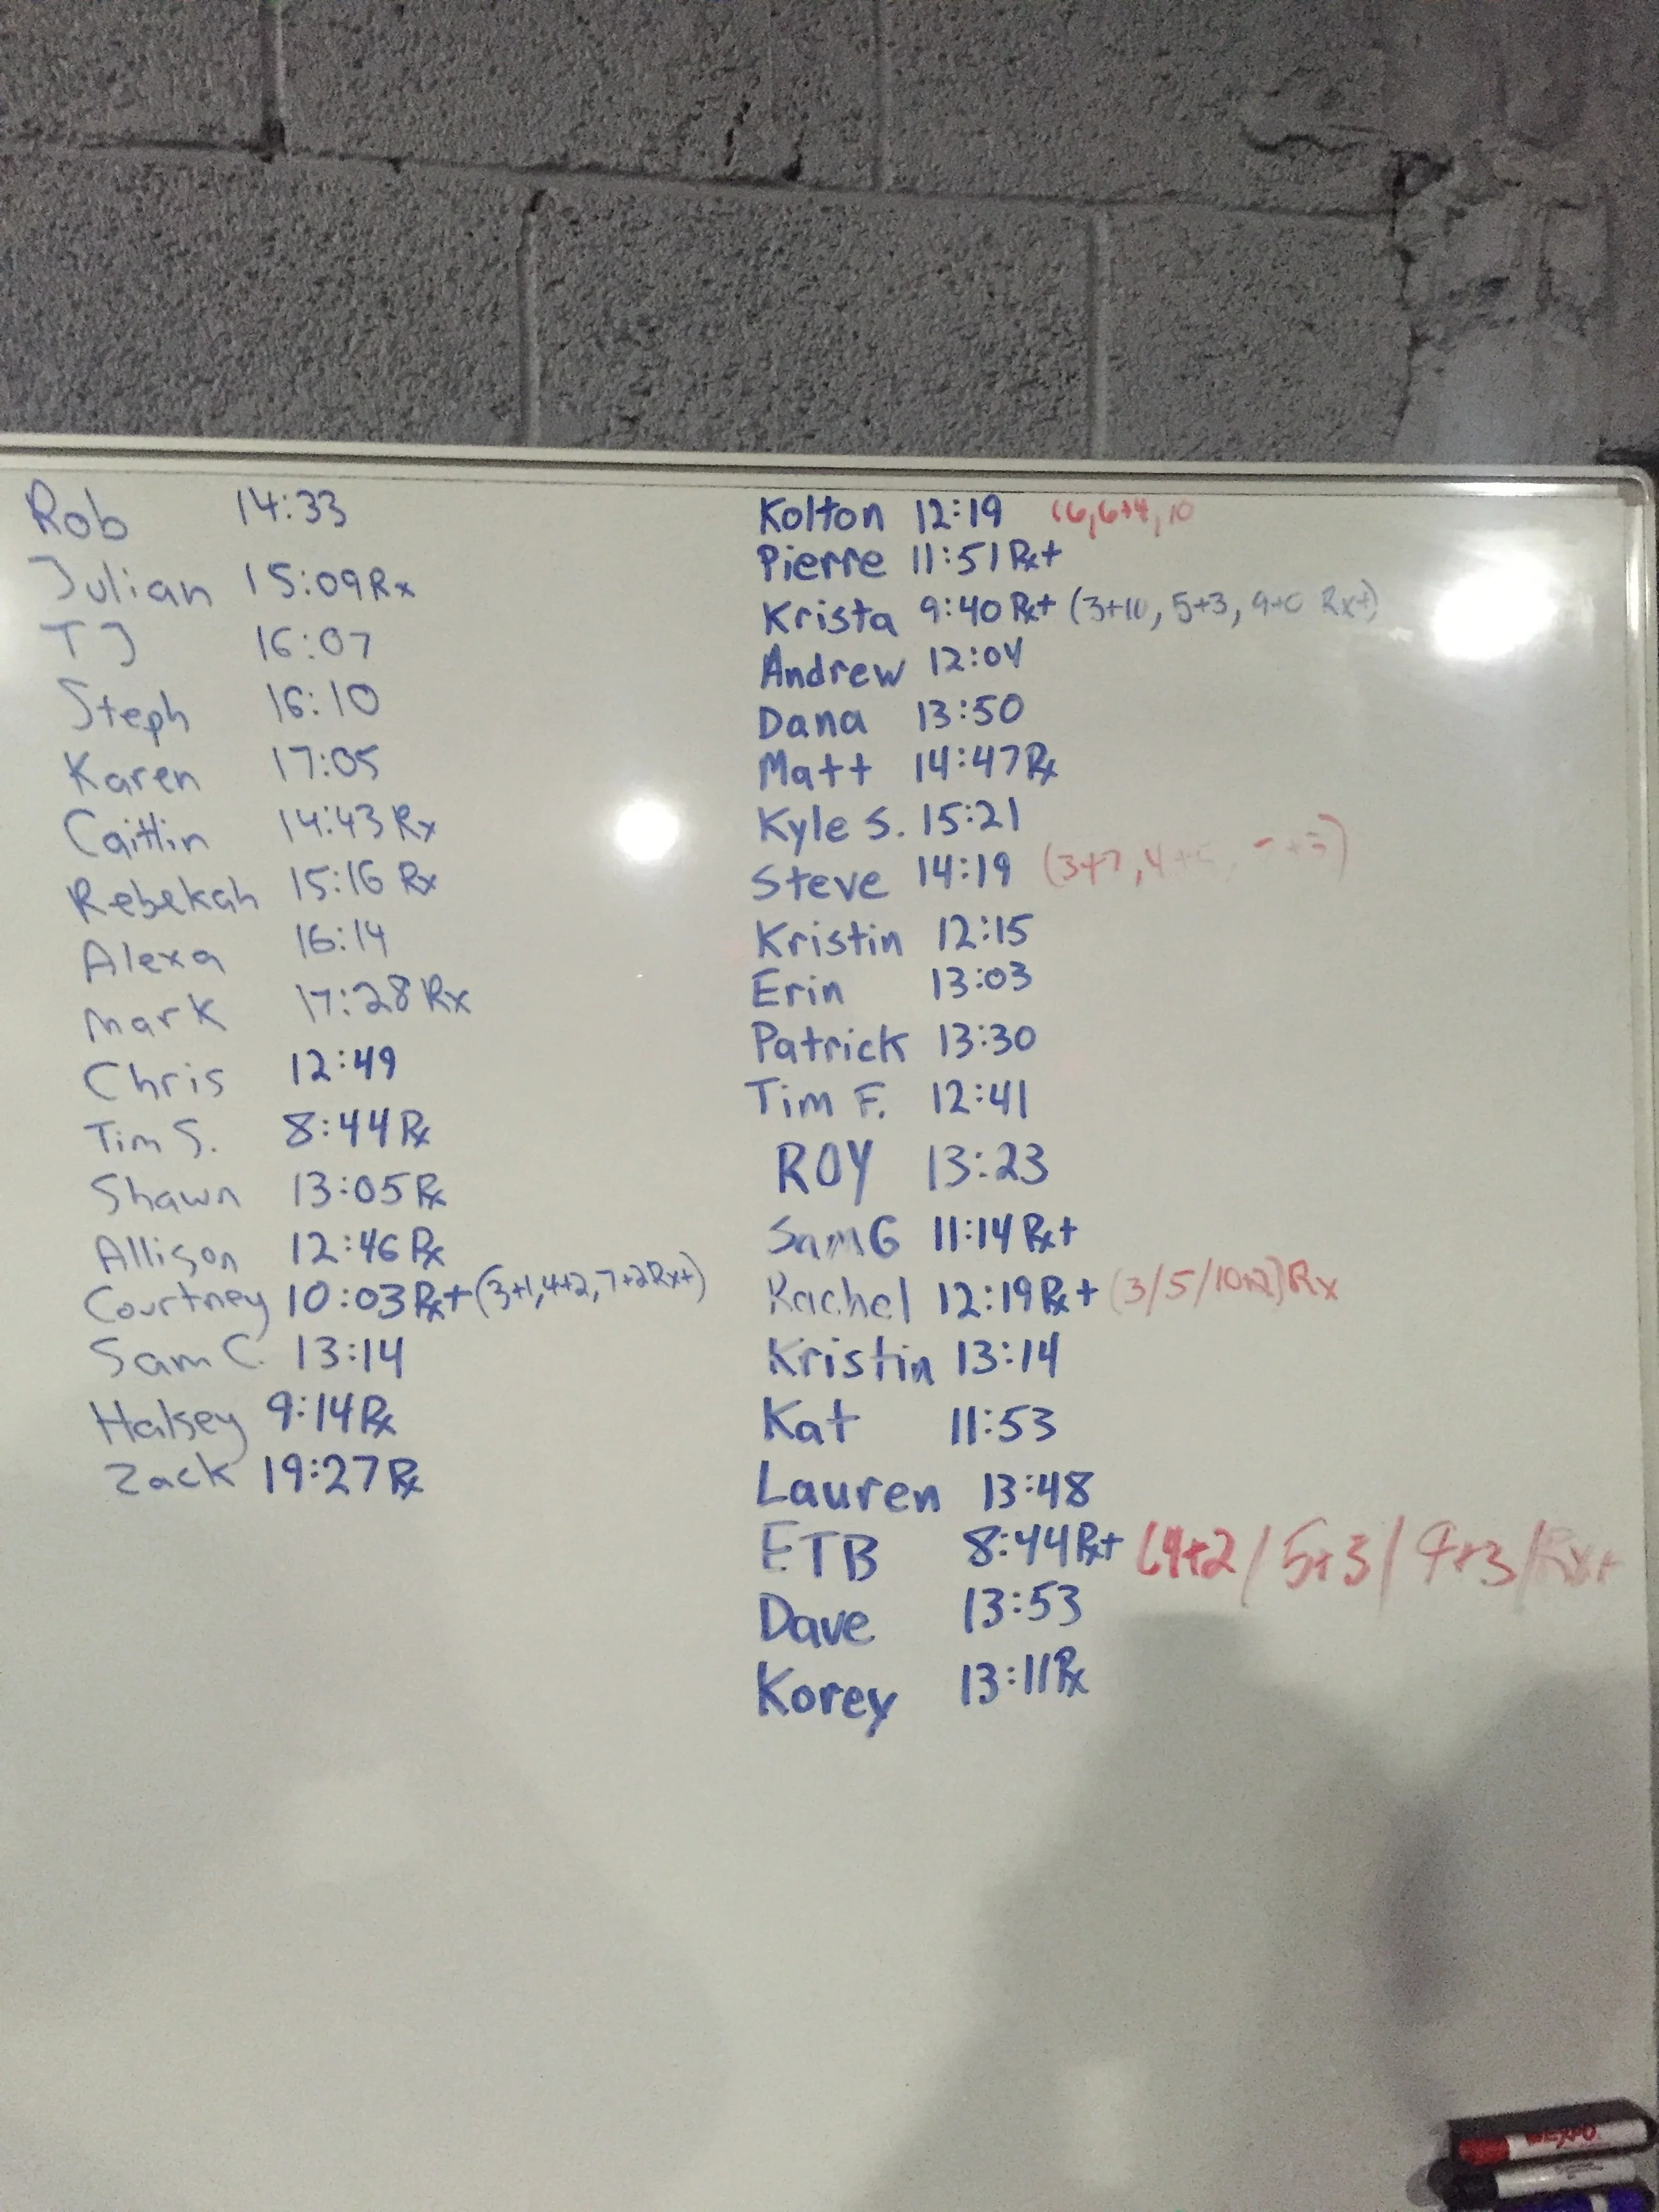 Rob 14:33
Julian 15:09 Rx
TJ 16:07
Steph 16:10
Karen 17:05
Caitlin 14:43 Rx
Rebekah 15:16 Rx
Alexa 16:14
Mark 17:28 Rx
Chris 12:49
Tim S. 8:44 Rx
Shawn 13:05 Rx
Allison 12:46 Rx
Courtney 10:03 Rx+ (3+1, 4+2, 7+2 Rx+)
Sam C. 13:14
Halsey 9:14 Rx
Zack 19:27 Rx
Kolton 12:19 (6, 6+4, 10
Pierre 11:51 Rx+
Krista 9:40 Rx+ (3+10, 5+3, 9+0 Rx+)
Andrew 12:04
Dana 13:50
Matt 14:47 Rx
Kyle S. 15:21
Steve 14:19 (3+7,
Kristin 12:15
Erin 13:03
Patrick 13:30
Tim F. 12:41
ROY 13:23
Sam G 11:14 Rx+
Rachel 12:19 Rx+ (3/5/10+2) Rx
Kristin 13:14
Kat 11:53
Lauren 13:48
ETB 8:44 Rx+ (4+2/5+3/9+3/Rx+
Dave 13:53
Korey 13:11 Rx
EXPO